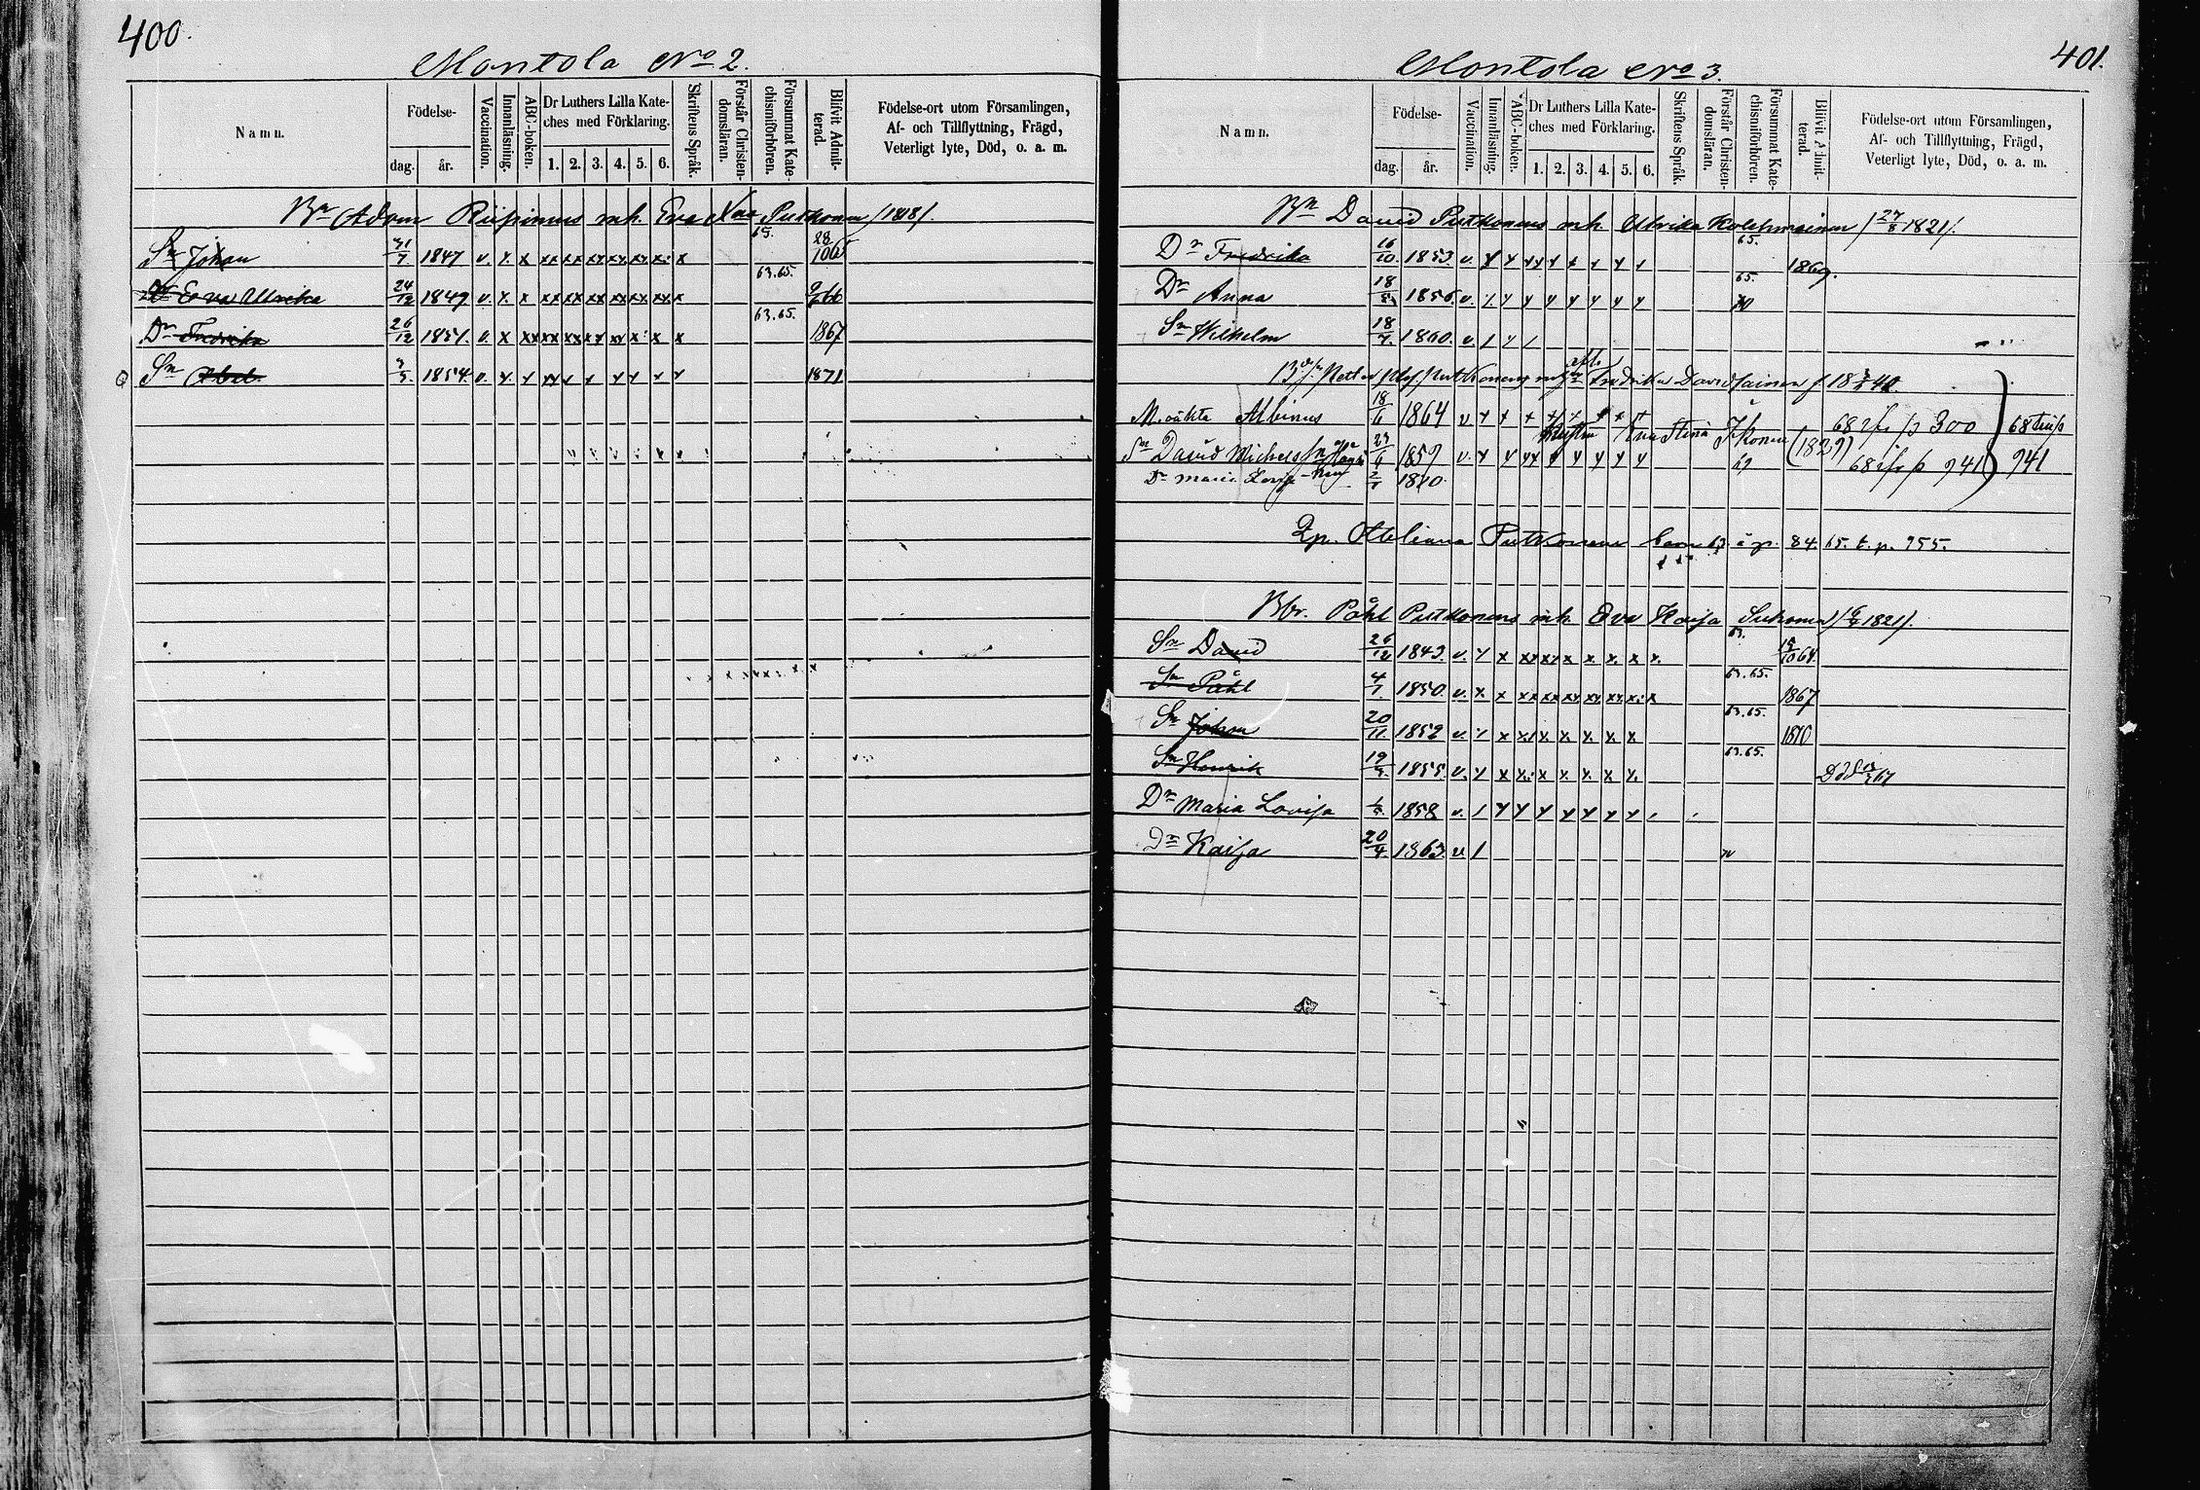 400.
Montola No 2.
Namn.
Födelse-
dag. år.
Vaccination.
Innanläsning.
ABC-boken.
Dr Luthers Lilla Kate-
ches med Förklaring.
1. 2. 3. 4. 5. 6.
Skriftens Språk.
Förstår Christen-
domsläran.
Försummat Kate-
chismiförhören.
Blifvit Admit-
terad.
Födelse-ort utom Församlingen,
Af- och Tillflyttning, Frägd,
Veterligt lyte, Död, o. a. m.
Bn Adam Riipinens mh. Eva Putkonen /1818/.
Sn Johan 31/7 1847 v. x. x xx xx xx xx xx x: x 65. 28/10 65
Dr Eva Ullrika 24/12 1849 v. x. x xx xx xx xx xx xx x 63.65. 9/6 66
Dr Fredrika 26/12 1851. v. x xx xx xx xx xx x: x x 63.65. 1867
Sn Abel 3/3. 1854 v. x. x xx x x xx x x x 1871
401.
Montola No 3.
Namn.
Födelse-
dag. år.
Vaccination.
Innanläsning.
ABC-boken.
Dr Luthers Lilla Kate-
ches med Förklaring.
1. 2. 3. 4. 5. 6.
Skriftens Språk.
Förstår Christen-
domsläran.
Försummat Kate-
chismiförhören.
Blifvit Admit-
terad.
Födelse-ort utom Församlingen,
Af- och Tillflyttning, Frägd,
Veterligt lyte, Död, o. a. m.
Bn David Putkonens mh. Ulrika Kolehmainen /27/8 1821/.
Dr Fredrika 16/10. 1853 v. x x xx x x x x x 65. 1869.
Dr Anna 18/5 1856. v. x x x x x x x x 65. 70
Sn Wilhelm 18/7. 1860. v. / x /
Putkonens Fredrika Davidsainen f 18 3/8 40.
M. oäkta Albinus 18/6 1864 v x x x x x x x x 68 ifr p 300 68 till p
Hustru Eva Stina Ikonen (1829)
Sn David Michelsson 23/6 1859 v. x x xx x x x x x 69 68 ifr p 941 941
Dr Maria Lovisa 1870.
Ottiliana Putkonens barn 63 å p. 84. 65. t. p. 955.
Bbr. Påhl Putkonens mh. Eva Kaisa Suhonen /1821/.
Sn David 26/12 1843. v. x x xx xx x x x. x x. 63. 15/10 64.
Sn Påhl 4/7. 1850. v. x x xx xx xx xx xx x: x 63.65. 1867
Sn Johan 20/11 1852 v. x x xx x x x x x 63.65. 1870
Sn Henrik 19/3. 1855. v. x x xx: x x x x x. 63.65. Död 67
Dr Maria Lovisa 1858 v. / x x x x x x x
Dr Kaisa 20/4 1863. v. /